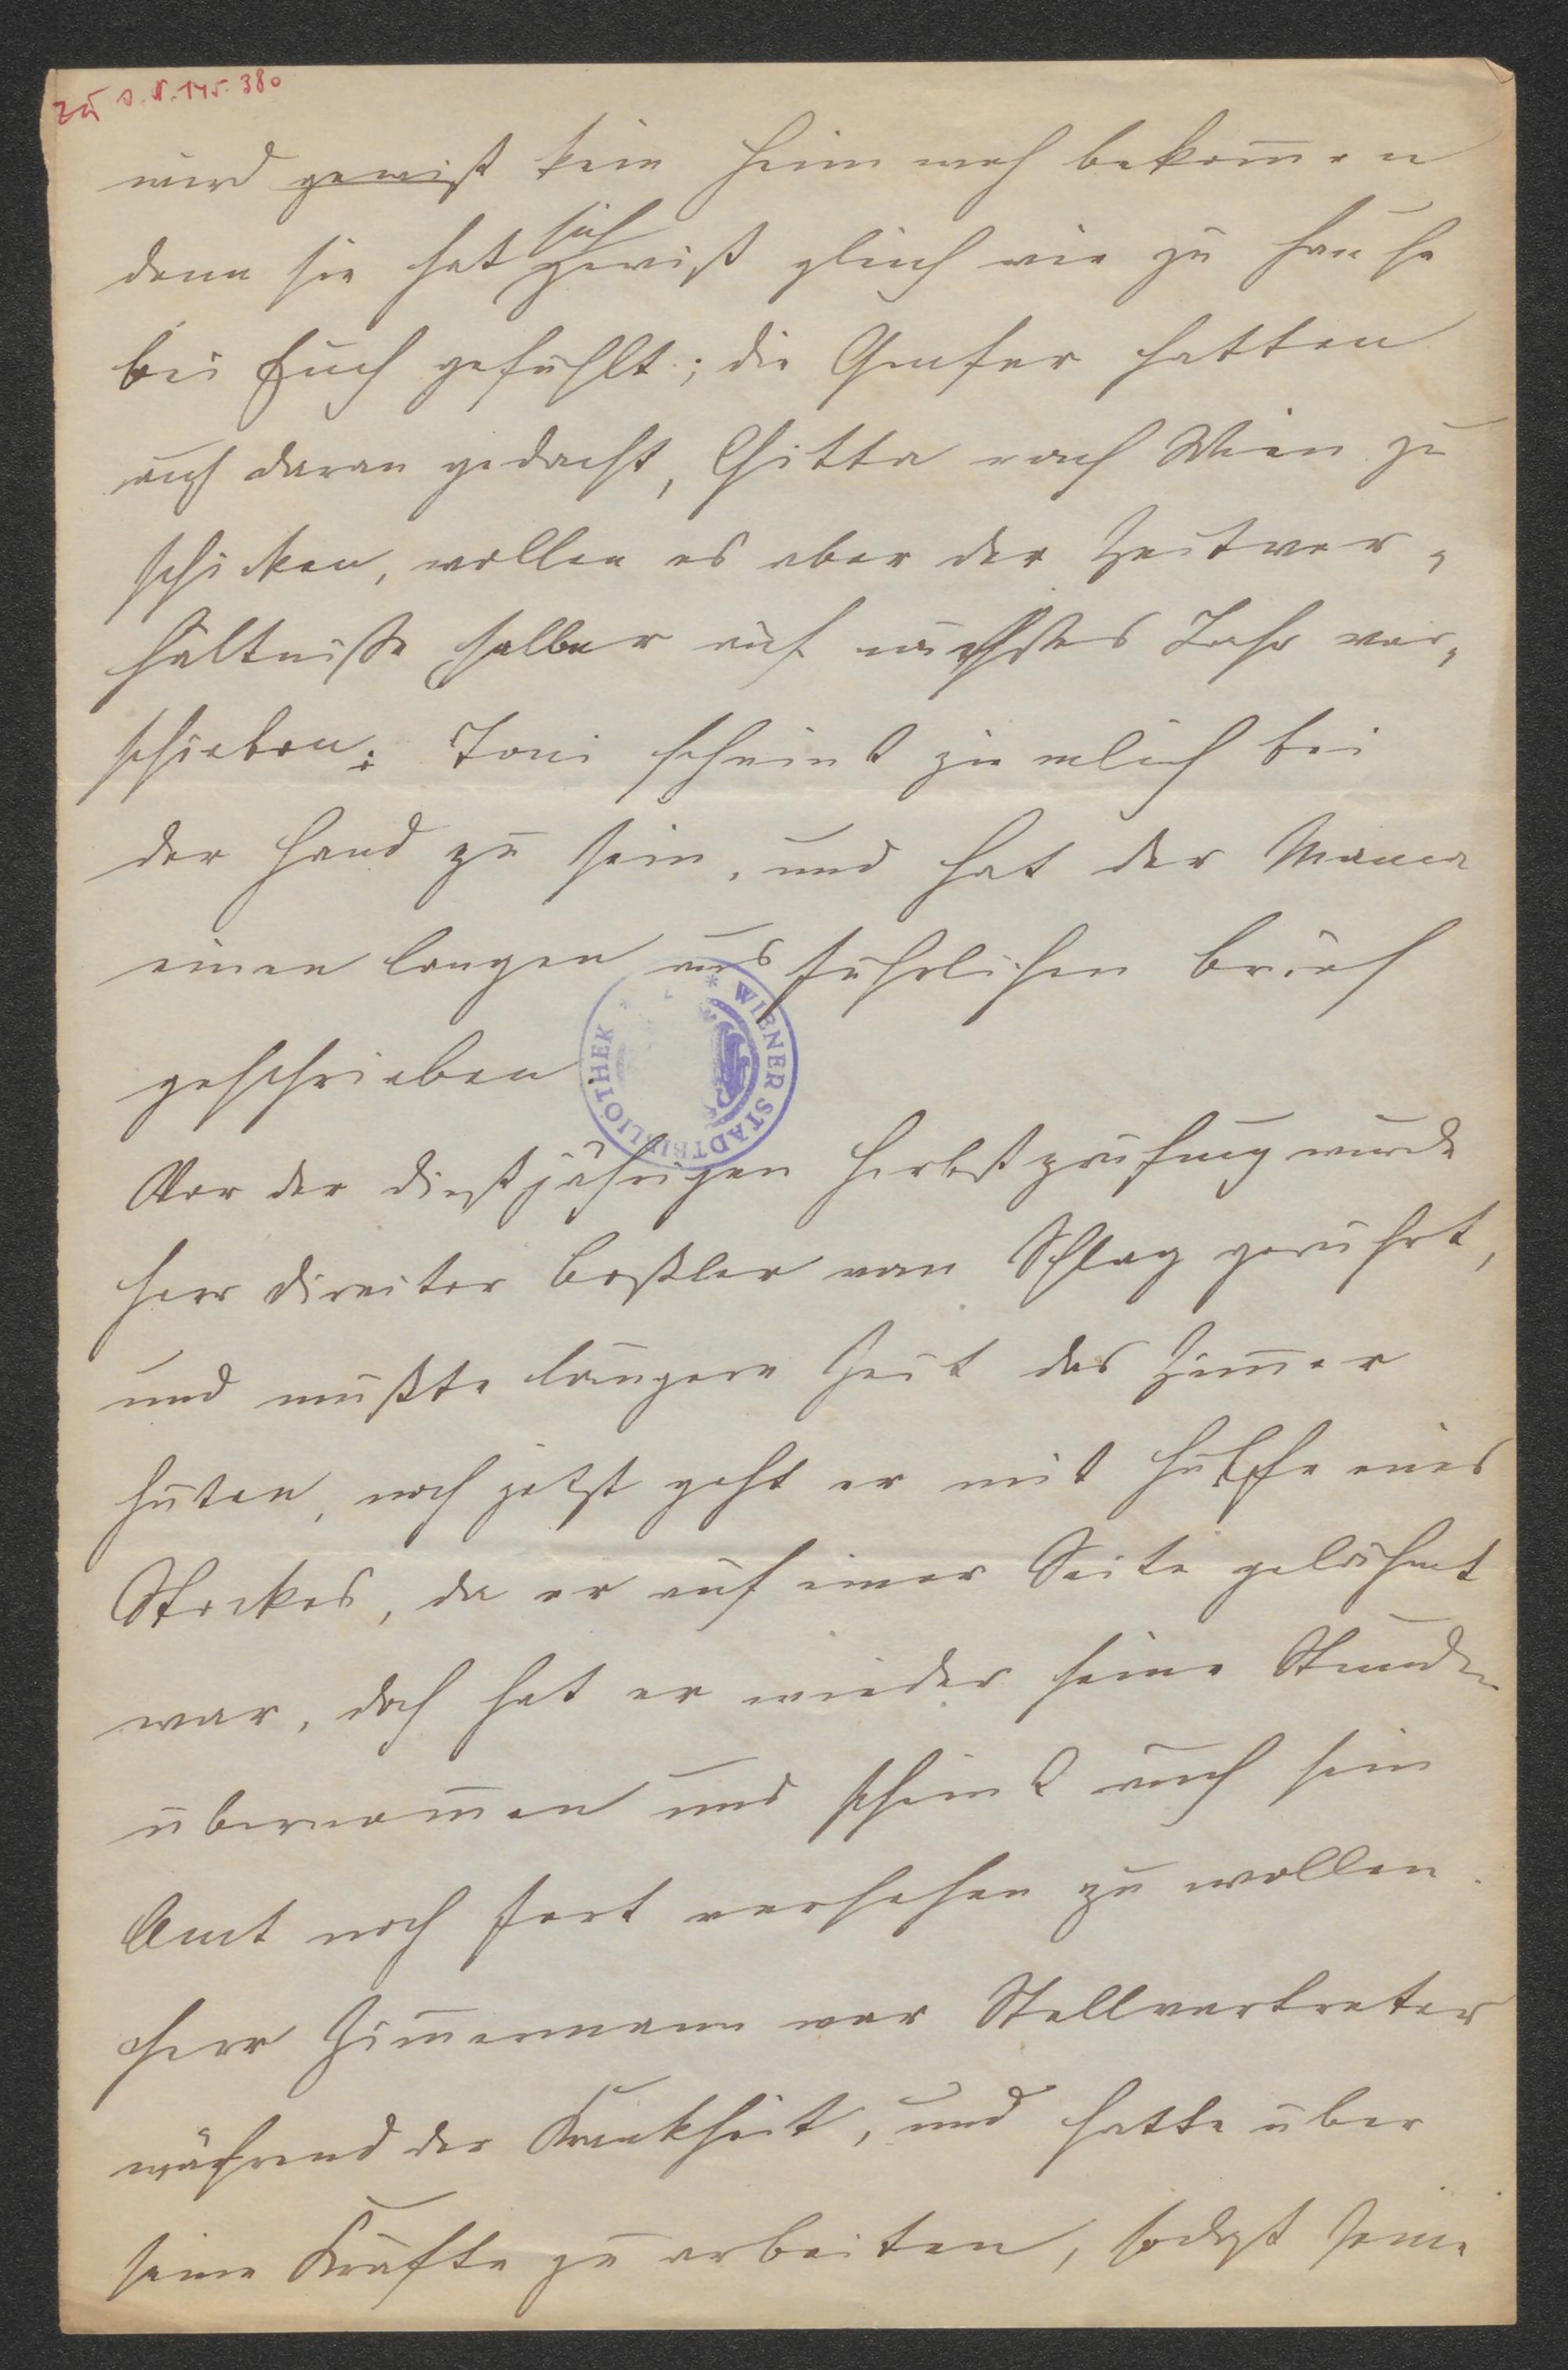 zu I.N. 145.380
wird gewiß kein Heimweh bekom̅en
denn sie hat sich gewiß gleich wie zu Hause
bei Euch gefühlt; die Grafer hatten
auch daran gedacht, Gitta nach Wien zu
schicken, wollen es aber der Zeitver-
hältniße halber auf nächstes Jahr ver-
schieben; Toni scheint ziemlich bei
der Hand zu sein, und hat der Mama
einen langen ausführlichen Brief
geschrieben.
WIENER STADTBIBLIOTHEK
Vor der dießjährigen Herbstprüfung wurde
Herr Direktor Boßler vom Schlag gerührt,
und mußte längere Zeit das Zim̅er
hüten, noch jetzt geht er mit Hülfe eines
Stockes, da er auf einer Seite gelähmt
war, doch hat er wieder seine Stunden
übernom̅en und scheint auch sein
Amt noch fort versehen zu wollen.
Herr Zim̅ermann war Stellvertreter
während der Krankheit, und hatte über
seine Kräfte zu arbeiten, sodaß seine